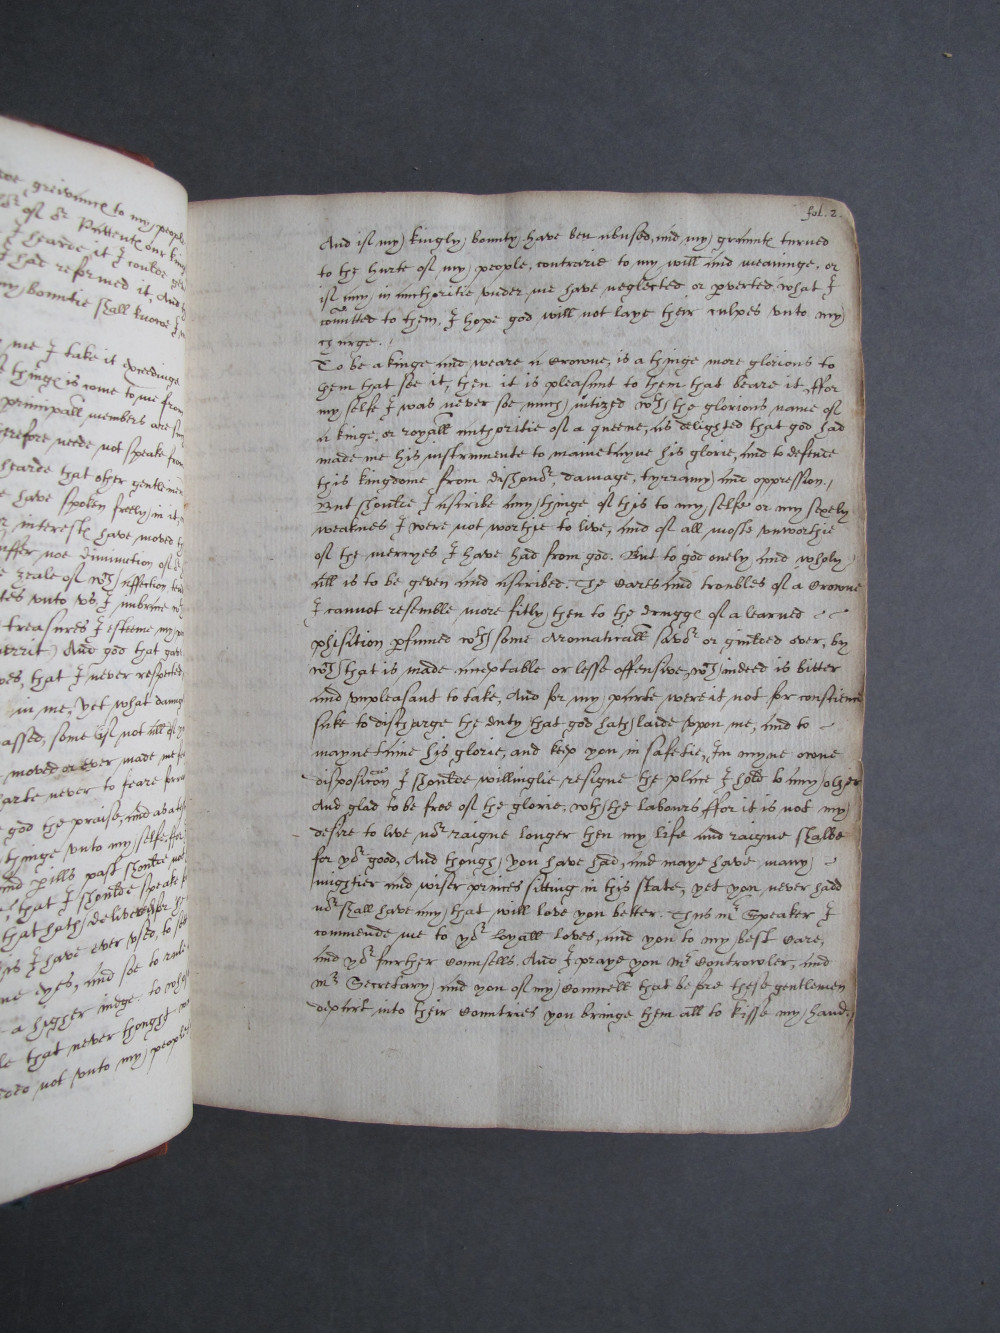 ove greivance to my people
I hearde it I coulde
I had reformed it, And
my bountie shall knowe I
me I take it exceedinge
thinge is come to me from
principall members are
therefore neede not speake from
hearde that other gentlemen
have spoken freely in it,
interest have moved
suffer noe diminution of
zeale of wch affection
unto vs, I imbrace
treasures I esteeme my
And god that gave
that I never respected
in me, yet what
passed, some of not all of
moved or ever made me
harte never to feare
god the praise, and
thinge vnto my selfe, for
and perills past shoulde not
that I shoulde speake
that hath delivered
as I have ever vsed, to set
myne eyes, and soe to rule
a higher iudge. to whose
that never thought
not vnto my peoples
fol. 2.
And if my kingly bounty have ben abused, and my graunts turned
to the hurte of my people, contrarie to my will and meaninge, or
if any in authoritie vnder me have neglected or pverted, what I
comitted to them, I hope god will not laye their culpes vnto my
charge.
To be a kinge and weare a Crowne, is a thinge more glorious to
them that see it, then it is pleasant to them that beare it, ffor
my selfe I was never soe much intized wth the glorious name of
a kinge, or royall authoritie of a queene, as delighted that god had
made me his instrumente to mainetayne his glorie, and to defence
this kingdome from dishonor, damage, tyrranny and oppression,
But shoulde I ascribe any thinge of this to my selfe or my sexely
weaknes I were not worthie to live, and of all moste vnworthie
of the mercyes I have had from god. But to god onely and wholy
all is to be geven and ascribed. The Cares and troubles of a Crowne
I cannot resemble more fitly then to the drugge of a learned
phisition pfumed wth some Aromaticall savor or guilded over, by
wch that is made acceptable or lesse offensive, wch indeed is bitter
and vnpleasant to take, And for my parte were it not for conscience
sake to discharge the duty that god hath laide vpon me, and to
mayntaine his glorie, and kep you in safetie, In myne owne
disposicon I shoulde willinglie resigne the place I hold to any other
And glad to be free of the glorie, wth the labours, ffor it is not my
desire to live nor raigne longer then my life and raigne shalbe
for yor good, And though you have had, and maye have many
mightier and wiser princes sitting in this state, yet you never hadd
nor shall have any that will love you better. Thus mr Speaker I
commende me to yor Loyall Loves, and you to my best Care,
and yor further Counsells. And I praye you mr Controwler, and
mr Secretary, and you of my Counnell that before these gentlemen
depart into their Countries you bringe them all to kisse my hand.